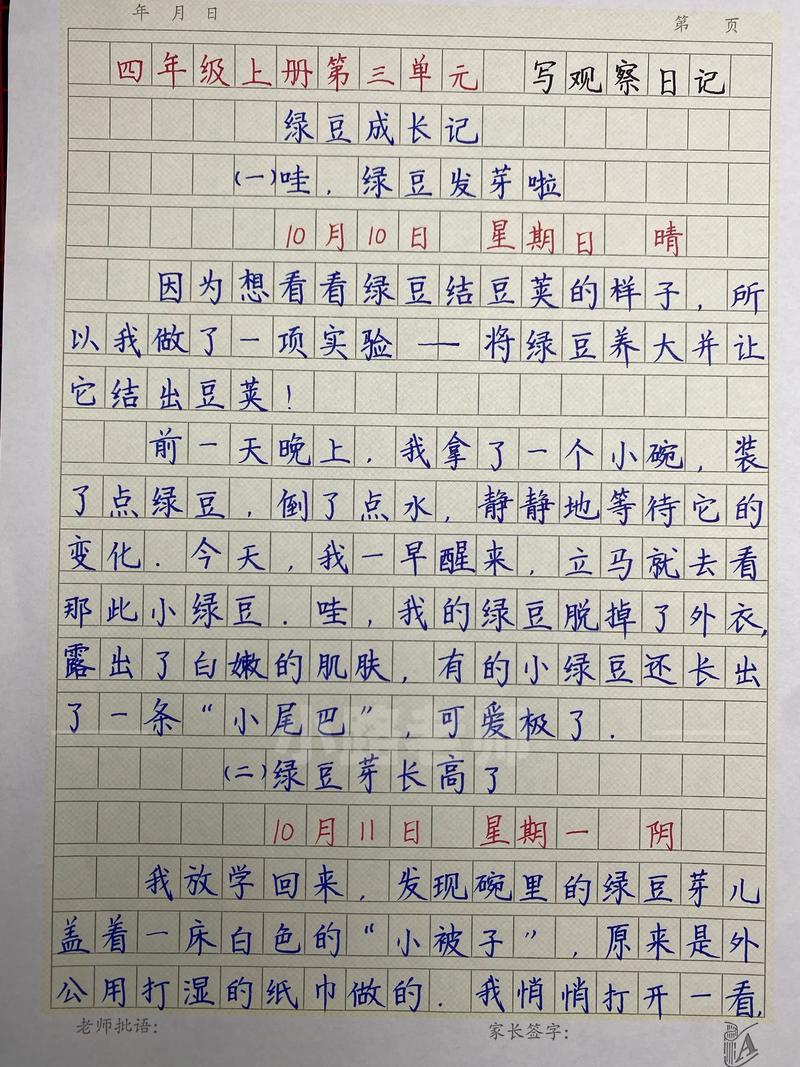 年 月 日
第 页
四年级上册第三单元 写观察日记
绿豆成长记
(一)哇，绿豆发芽啦
10月10日 星期日 晴
因为想看看绿豆结豆荚的样子，所
以我做了一项实验——将绿豆养大并让
它结出豆荚！
前一天晚上，我拿了一个小碗，装
了点绿豆，倒了点水，静静地等待它的
变化．今天，我一早醒来，立马就去看
那些小绿豆．哇，我的绿豆脱掉了外衣，
露出了白嫩的肌肤，有的小绿豆还长出
了一条“小尾巴”，可爱极了．
(二)绿豆芽长高了
10月11日 星期一 阴
我放学回来，发现碗里的绿豆芽儿
盖着一床白色的“小被子”，原来是外
公用打湿的纸巾做的．我悄悄打开一看，
老师批语： 家长签字：